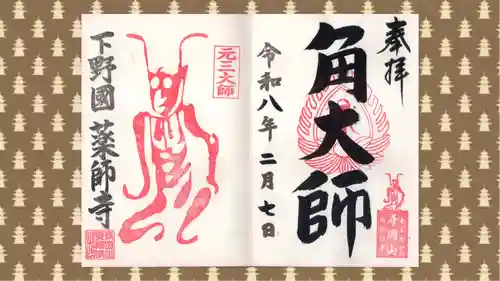 奉拝
角大師
令和八年二月七日
元三大師
下野國 薬師寺
寺岡山